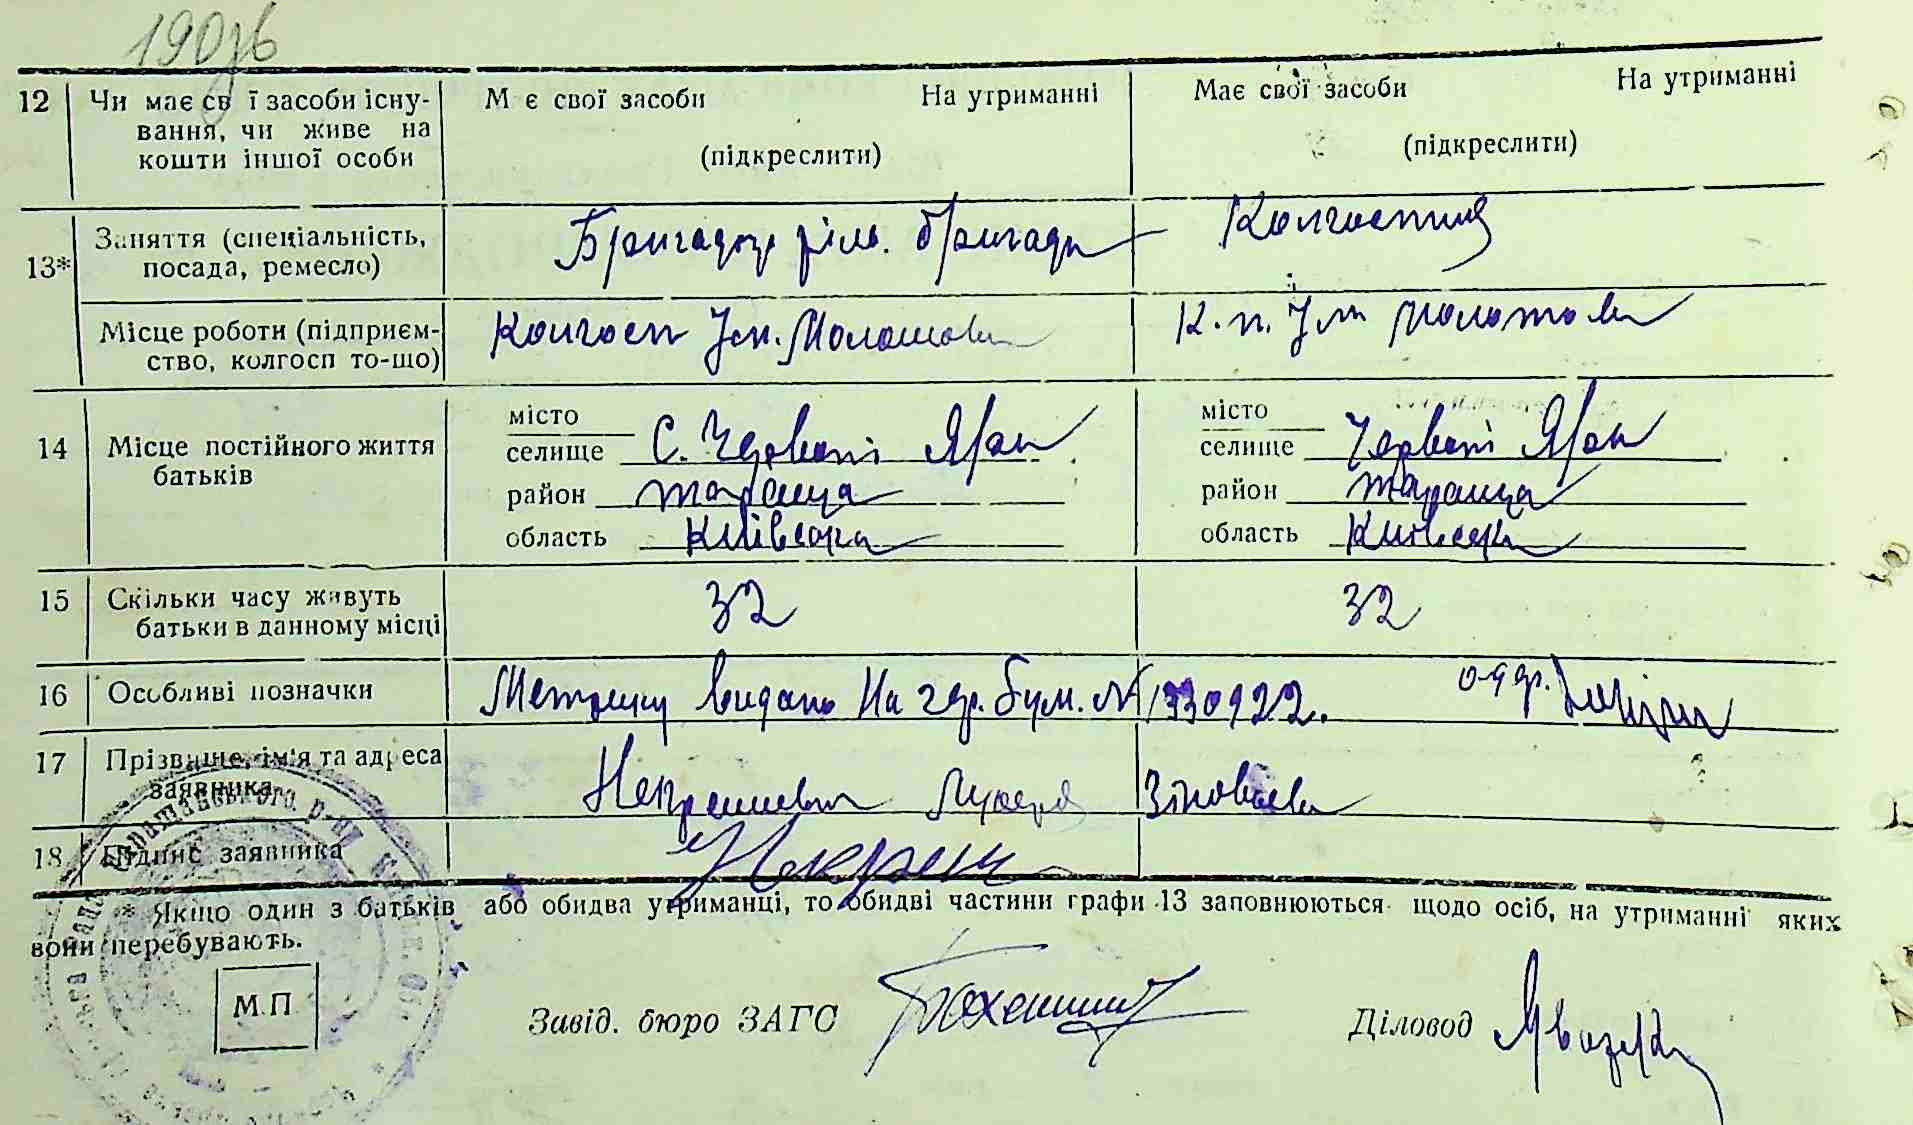 190зв
12 Чи має св ї засоби існу- М є свої засоби На утриманні Має свої засоби На утриманні
вання, чи живе на
кошти іншої особи (підкреслити) (підкреслити)
13* Заняття (спеціальність, Бригадир ріль. бригади Колгоспниця
посада, ремесло)
Місце роботи (підприєм- Колгосп Ім. Молотова К-п. Ім Молотова
ство, колгосп то-що)
14 Місце постійного життя батьків
місто місто
селище С. Червоні Яри селище Червоні Яри
район Тараща район Тараща
область Київська область Київська
15 Скільки часу живуть 32 32
батьки в данному місці
16 Особливі позначки Метрику видано На гер. бум. №1330922.
17 Прізвище, ім'я та адреса
заявника Зіновієва
18 Підпис заявника
* Якщо один з батьків або обидва утриманці, то обидві частини графи 13 заповнюються щодо осіб, на утриманні яких
вони перебувають.
М.П
Завід. бюро ЗАГС Діловод